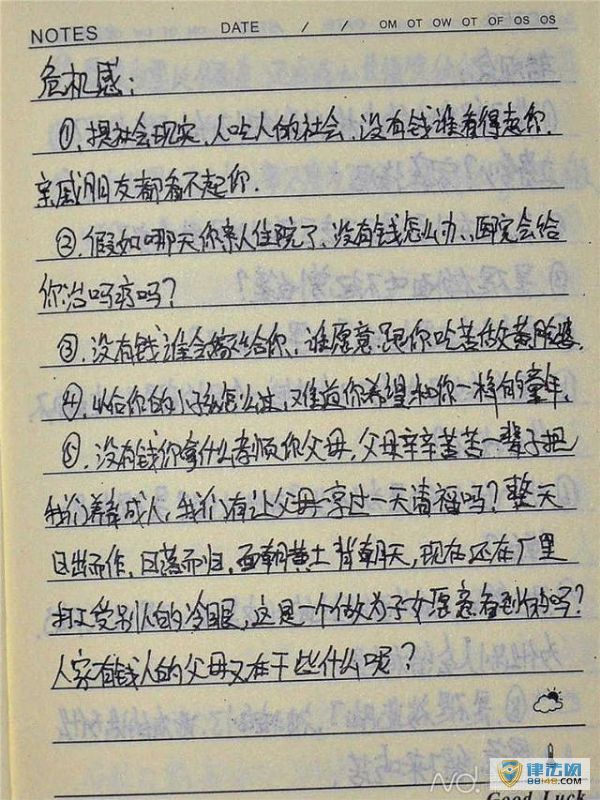 NOTES DATE / / OM OT OW OT OF OS OS
危机感：
①、提社会现实，人吃人的社会，没有钱谁看得起你，
亲戚朋友都看不起你．
②、假如哪天你亲人住院了，没有钱怎么办，医院会给
你治吗疗吗？
③、没有钱谁会嫁给你，谁愿意跟你吃苦做黄脸婆．
④、以后你的小孩怎么过，难道你希望和你一样的童年．
⑤、没有钱你拿什么孝顺你父母，父母辛辛苦苦一辈子把
我们养育成人，我们有让父母享过一天清福吗？整天
日出而作，日落而归，面朝黄土背朝天，现在还在厂里
打工受别人的冷眼，这是一个做为子女愿意看到的吗？
人家有钱人的父母又在干些什么呢？
律志网
88148.com
Good Luck